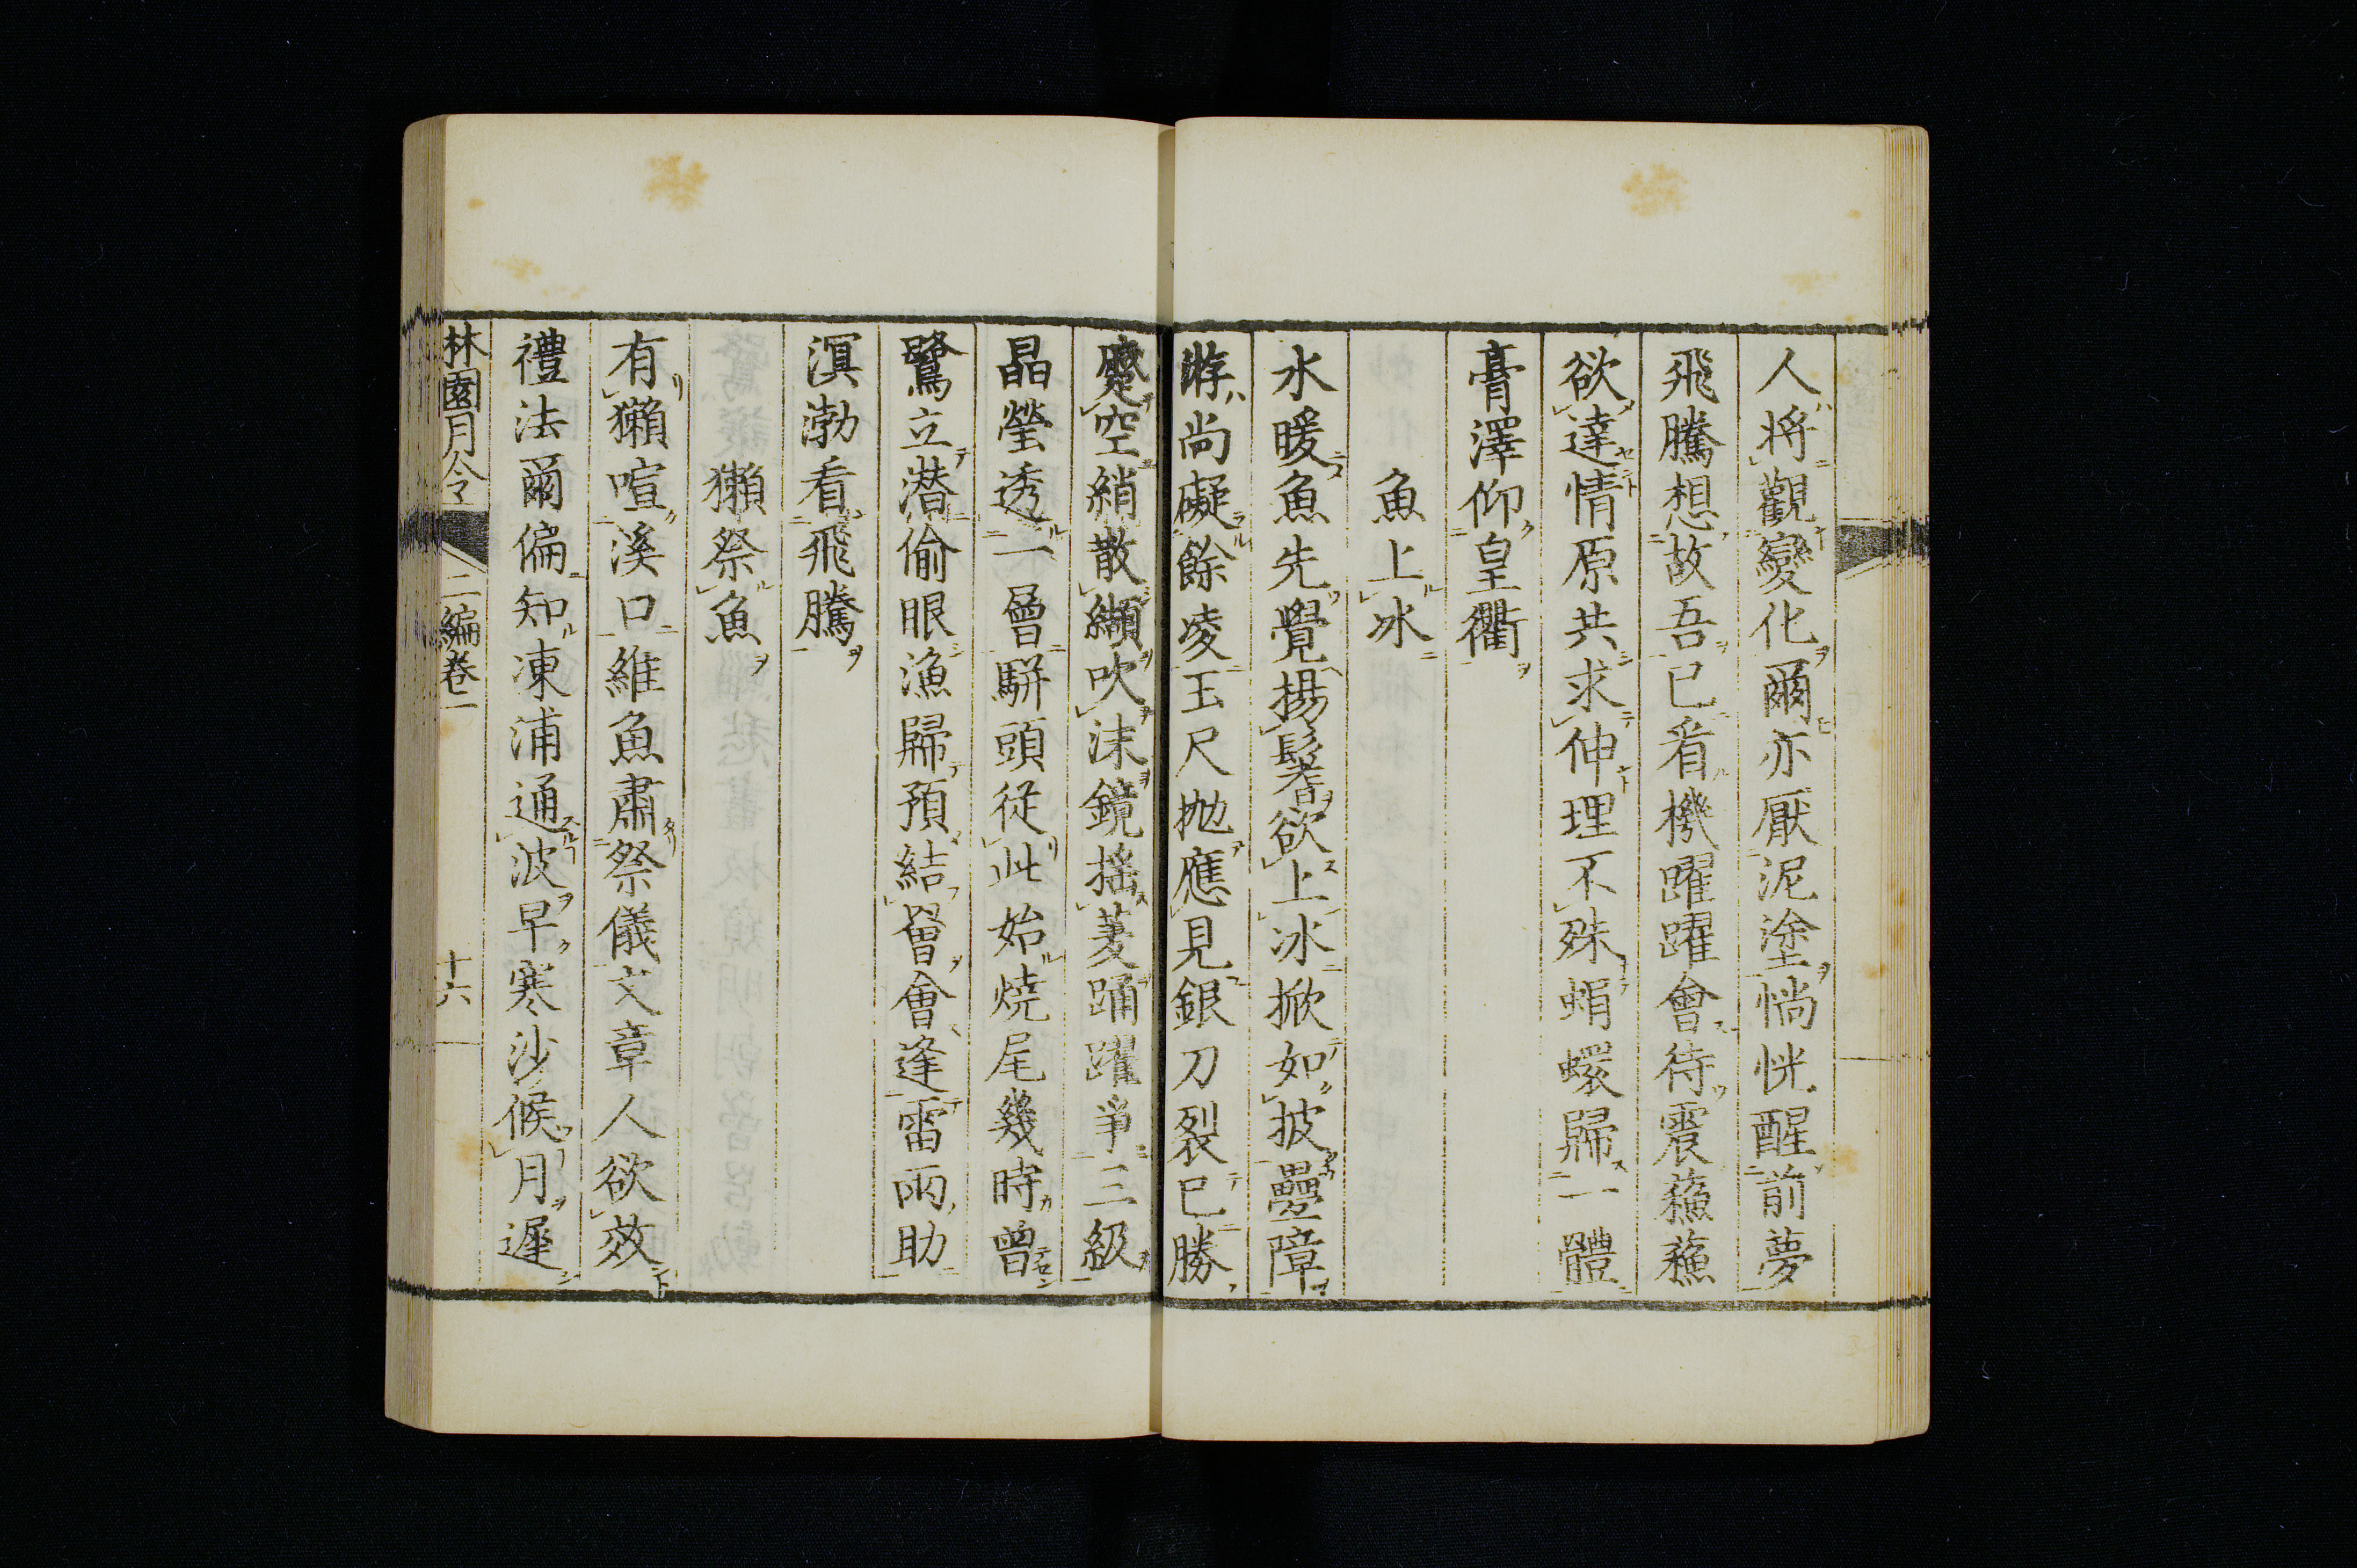 人將觀變化爾亦厭泥塗惝恍醒前夢
飛騰想故吾已看機躍躍會待震蘓蘓
欲達情原共求伸理不殊蜎蠉歸一體
膏澤仰皇衢
魚上冰
水暖魚先覺揚鬐欲上冰掀如披疊障
游尚礙餘凌玉尺抛應見銀刀裂已勝
蹙空綃散纈吹沫鏡揺菱踊躍爭三級
晶瑩透一層駢頭從此始燒尾幾時曾
鷺立潜偷眼漁歸預結罾會逢雷雨助
溟渤看飛騰
獺祭魚
有獺喧溪口維魚肅祭儀文章人欲效
禮法爾偏知凍浦通波早寒沙候月遲
林園月令 二編卷一 十六